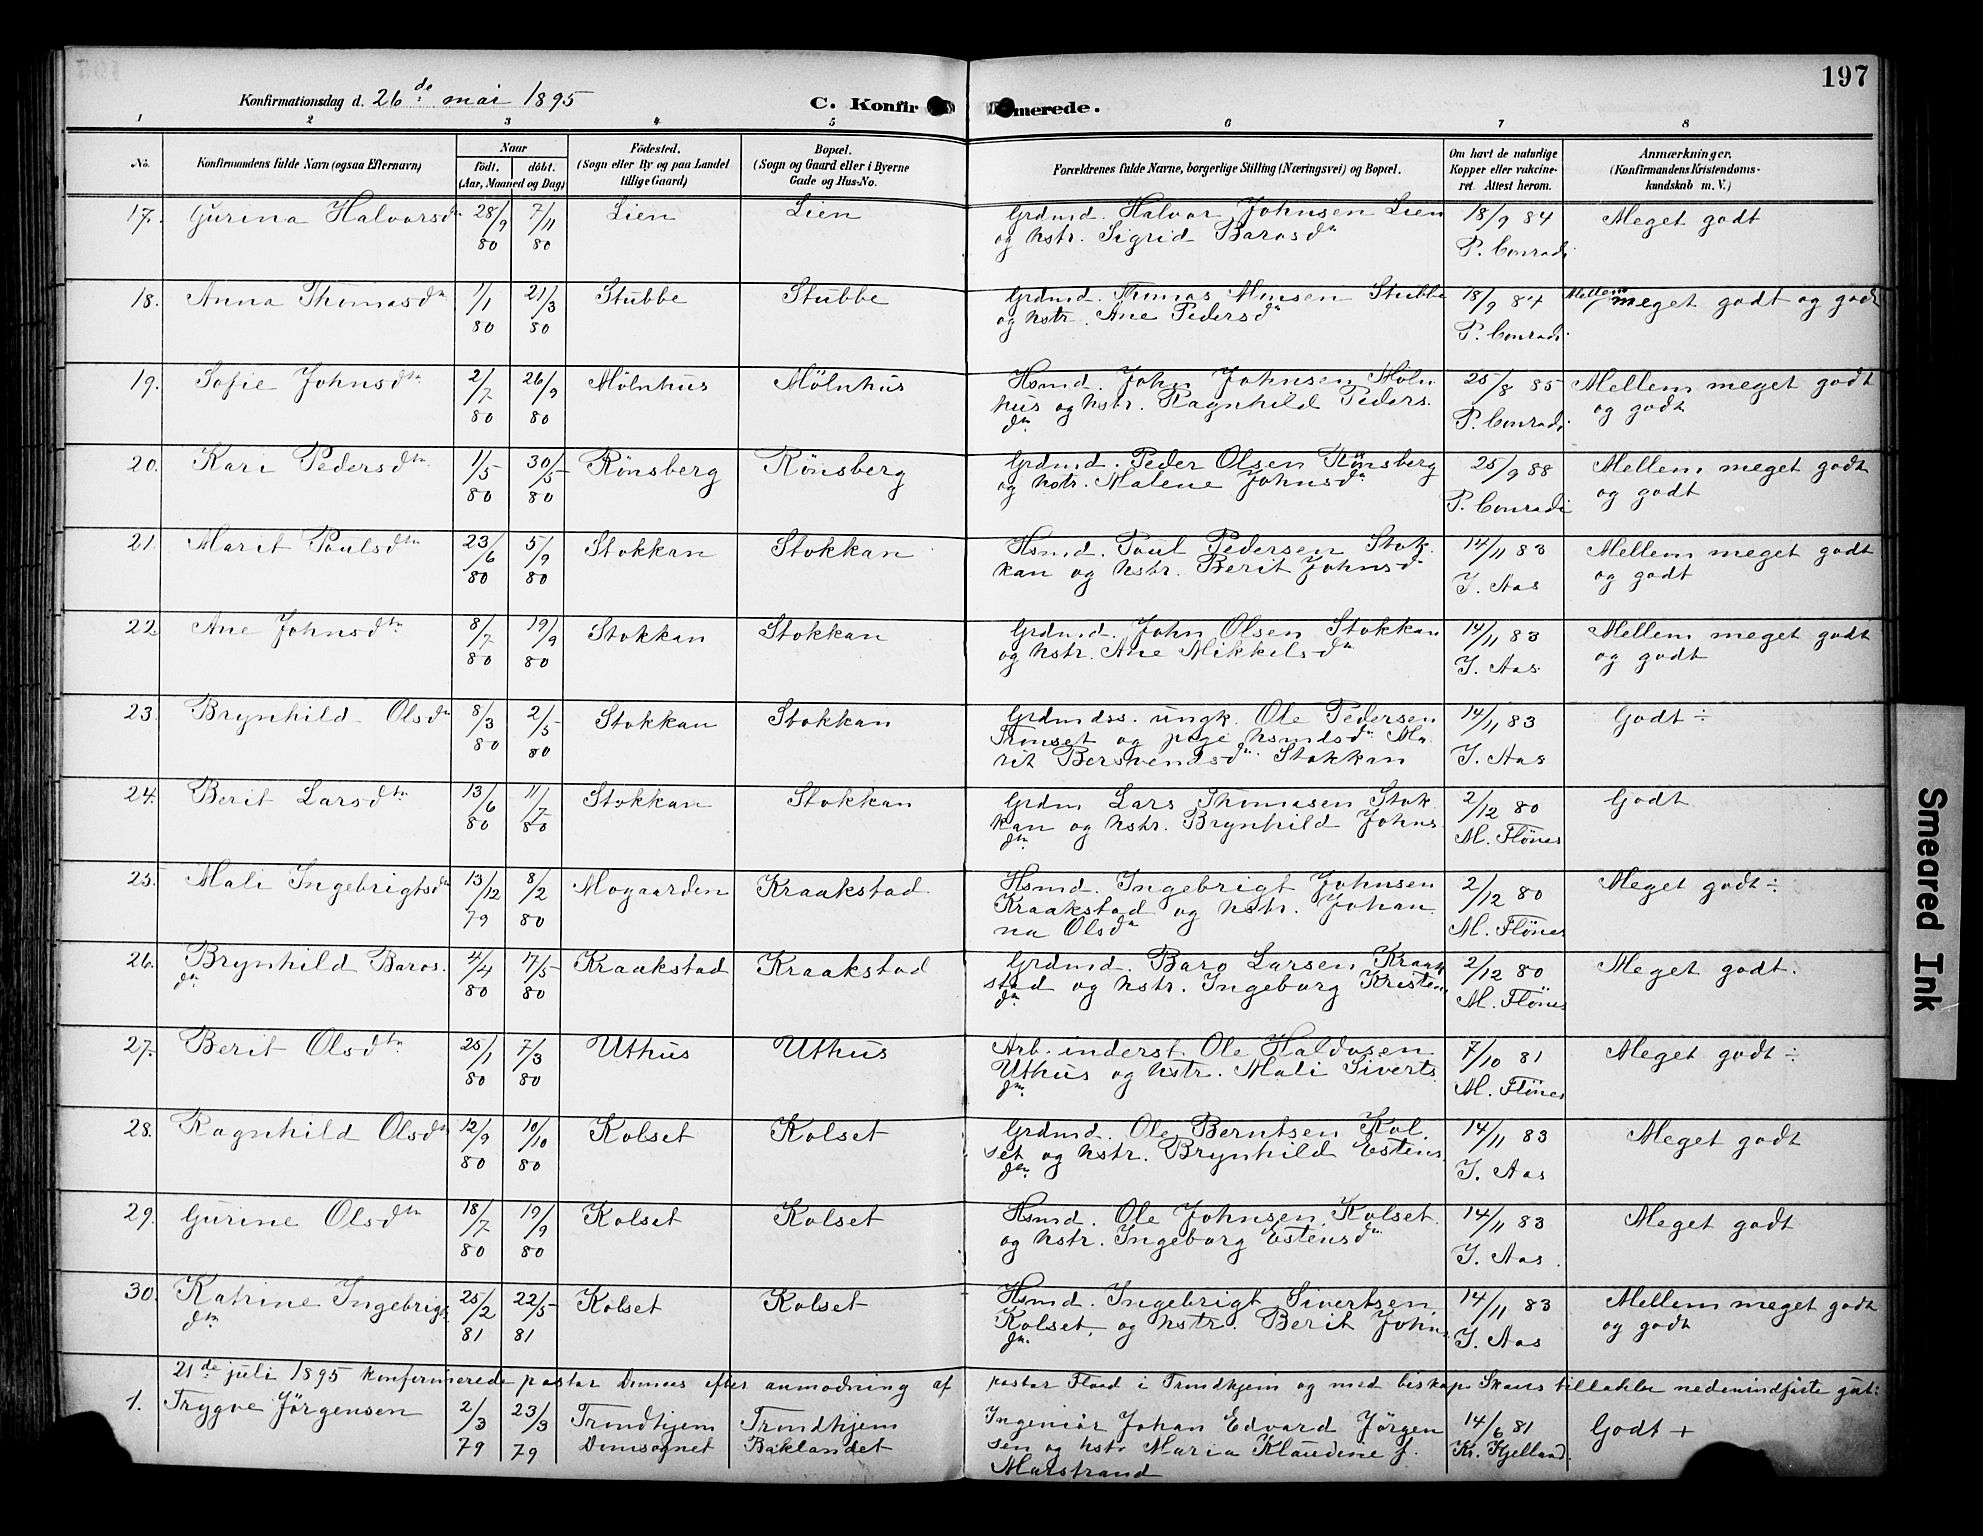 197
Konfirmationsdag d. 26de mai 1895 C. Konfirmerede.
1 2 3 4 5 6 7 8
No. Konfirmandens fulde Navn (ogsaa Efternavn) Naar født. døbt. (Aar, Maaned og Dag) Fødested. (Sogn eller By og paa Landet tillige Gaard) Bopæl. (Sogn og Gaard eller i Byerne Gade og Hus-No. Forældrenes fulde Navne, borgerlige Stilling (Næringsvei) og Bopæl. Om havt de naturlige Kopper eller vakcineret. Attest herom. Anmærkninger. (Konfirmandens Kristendomskundskab m. V.)
17. Gurina Halvorsdn 28/9 80 7/11 80 Lien Lien Grdmd. Halvor Johnsen Lien
og hstr. Sigrid Barosdn 18/9 84 P. Conradi Meget godt
18. Anna Thomasdn 1/1 80 21/3 80 Stubbe Stubbe Grdmd. Thomas Monsen Stubbe
og hstr. Ane Pedersdn 18/9 84 P. Conradi Mellem meget godt og godt
19. Sofie Johnsdtn 2/7 80 26/9 80 Mölnhus Mölnhus Hsmd. John Johnsen Möln
hus og hstr. Ragnhild Peders.
dn 25/8 85 P. Conradi Mellem meget godt
og godt
20. Kari Pedersdtn 1/5 80 30/5 80 Rönsberg Rönsberg Grdmd. Peder Olsen Rönsberg
og hstr. Malene Johnsdn 25/9 88 P. Conradi Mellem meget godt
og godt
21. Marit Paulsdtn 23/6 80 5/9 80 Stokkan Stokkan Hsmd. Paul Pedersen Stok.
kan og hstr. Berit Johnsd 14/11 83 J. Aas Mellem meget godt
og godt
22. Ane Johnsdtn 8/7 80 19/9 80 Stokkan Stokkan Grdmd. John Olsen Stokkan
og hstr. Ane Mikkelsdn 14/11 83 J. Aas Mellem meget godt
og godt
23. Brynhild Olsdn 8/3 80 2/5 80 Stokkan Stokkan Grdmdss. ungk. Ole Pedersen
Tronset og pige hsmdsdn Ma.
rit Bersvendsdn Stokkan 14/11 83 J. Aas Godt ÷
24. Berit Larsdtn 13/6 80 11/7 80 Stokkan Stokkan Grdm Lars Thomasen Stok
kan og hstr. Brynhild Johns.
dn 2/12 80 M. Flönes Godt
25. Mali Ingebrigtsdn 13/12 79 8/2 80 Mogaarden Kraakstad Hsmd. Ingebrigt Johnsen
Kraakstad og hstr. Johan
na Olsdn 2/12 80 M. Flönes Meget godt ÷
26. Brynhild Baros.
dn 4/4 80 17/5 80 Kraakstad Kraakstad Grdmd. Baro Larsen Kraak
stad og hstr. Ingeborg Kristen
dn 2/12 80 M. Flönes Meget godt.
27. Berit Olsdtn 25/1 80 7/3 80 Uthus Uthus Arb. inderst. Ole Haldosen
Uthus og hstr. Mali Siverts.
dn 7/10 81 M. Flönes Meget godt ÷
28. Ragnhild Olsdn 12/9 80 10/10 80 Kolset Kolset Grdmd. Ole Berntsen Kol.
set og hstr. Brynhild Estens.
dn 14/11 83 J. Aas Meget godt
29. Gurine Olsdtn 18/7 80 19/9 80 Kolset Kolset Hsmd. Ole Johnsen Kolset.
og hstr. Ingeborg Estensdn 14/11 83 J. Aas Meget godt
30. Katrine Ingebrigts
dtn 25/2 81 22/5 81 Kolset Kolset Hsmd. Ingebrigt Sivertsen.
Kolset, og hstr. Berit Johns
dn 14/11 83 J. Aas Mellem meget godt
og godt
21de juli 1895 konfirmerede pastor efter anmodning af pastor i Trondhjem og med biskop tilladelse nedenindførte gut:
1. Trygve Jörgensen 2/3 79 23/3 79 Trondhjem Domsognet Trondhjem Baklandet Ingeniör Johan Edvard Jörgen
sen og hstr Maria Klaudine f.
Marstrand 14/6 81 Kr. Kjelland Godt +
Smeared Ink